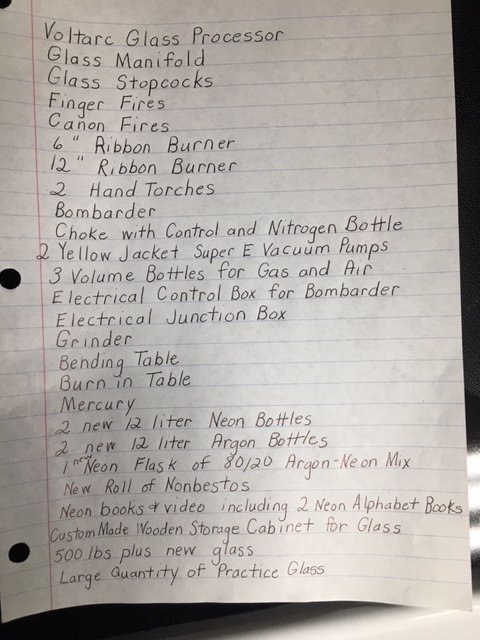 Voltarc Glass Processor
Glass Manifold
Glass Stopcocks
Finger Fires
Canon Fires
6" Ribbon Burner
12" Ribbon Burner
2 Hand Torches
Bombarder
Choke with Control and Nitrogen Bottle
2 Yellow Jacket Super E Vacuum Pumps
3 Volume Bottles for Gas and Air
Electrical Control Box for Bombarder
Electrical Junction Box
Grinder
Bending Table
Burn in Table
Mercury
2 new 12 liter Neon Bottles
2 new 12 liter Argon Bottles
1 new Neon Flask of 80/20 Argon-Neon Mix
New Roll of Nonbestos
Neon books & video including 2 Neon Alphabet Books
Custom Made Wooden Storage Cabinet for Glass
500 lbs plus new glass
Large Quantity of Practice Glass